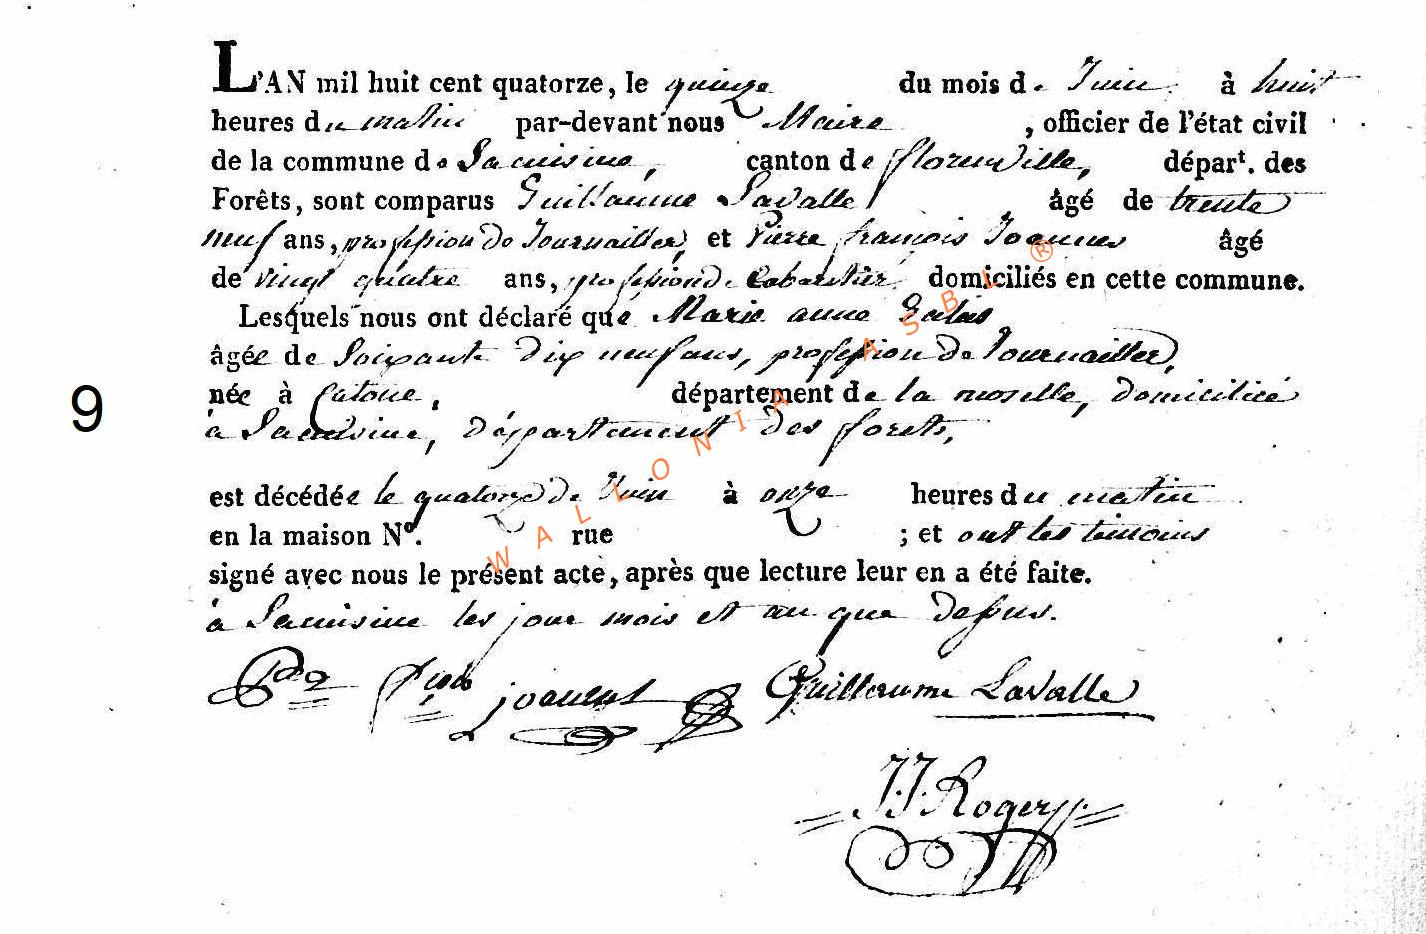 L'AN mil huit cent quatorze, le quinze du mois de Juin à huit
heures du matin par-devant nous Maire , officier de l'état civil
de la commune de Lacuisine, canton de florenville, départ. des
Forêts, sont comparus Guillaume Lavalle âgé de trente
neuf ans, profession de Journailler, et Pierre françois Joannes âgé
de vingt quatre ans, profession de Cabartier domiciliés en cette commune.
Lesquels nous ont déclaré que Marie anne
âgée de Soixante dix neuf ans, profession de Journailler,
née à Catone, département de la moselle, domicilicé
à Lacuisine, départament des forets,
est décédée le quatorze de Juin à onze heures du matin
en la maison N°. rue ; et ont les temoins
signé avec nous le présent acte, après que lecture leur en a été faite.
à Lacuisine les jour mois et an que dessus.
9
joannes
Guillaume LaValle
J.J. Roger
WALLONIA ASBL ®